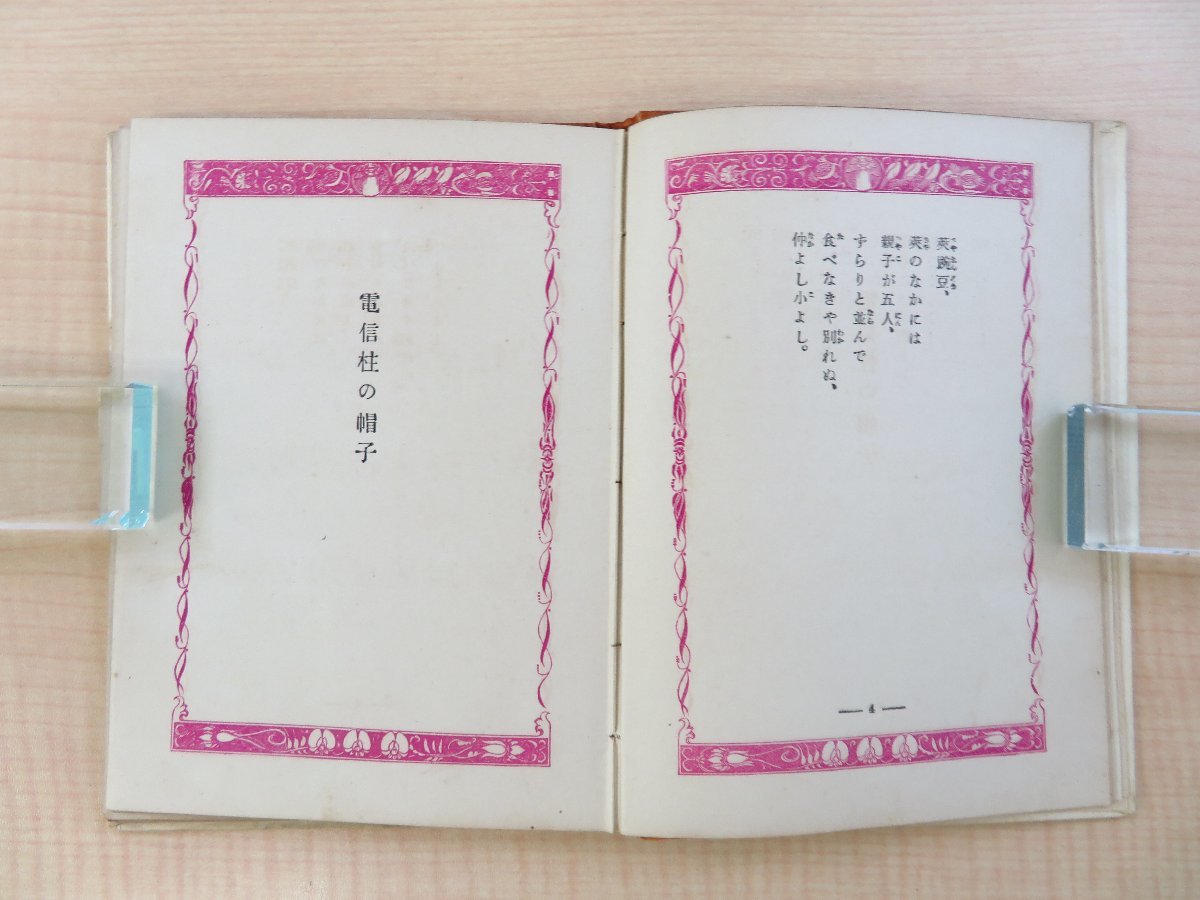 莢豌豆、
莢のなかには
親子が五人、
ずらりと並んで
食べなきや別れぬ、
仲よし小よし。
— 4 —
電信柱の帽子